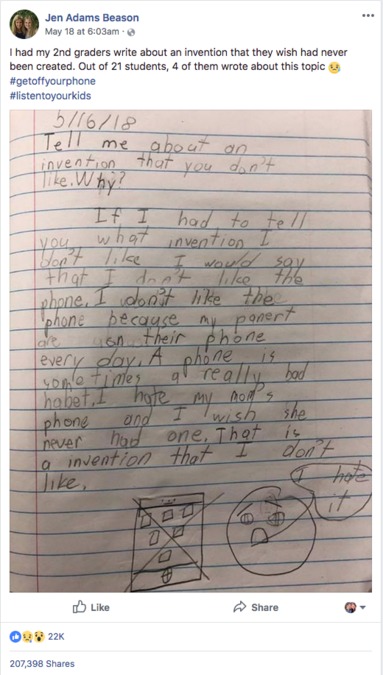 Jen Adams Beason
May 18 at 6:03am ·
I had my 2nd graders write about an invention that they wish had never
been created. Out of 21 students, 4 of them wrote about this topic
#getoffyourphone
#listentoyourkids
5/16/18
Tell me about an
invention that you don't
like. Why?
If I had to tell
you what invention I
don't like I would say
that I don't like the
phone. I don't like the
phone because my panert
are on their phone
every day. A phone is
sometimes a really bad
habet. I hate my mom's
phone and I wish she
never had one. That is
a invention that I don't
like.
I hate
it
Like
Share
22K
207,398 Shares